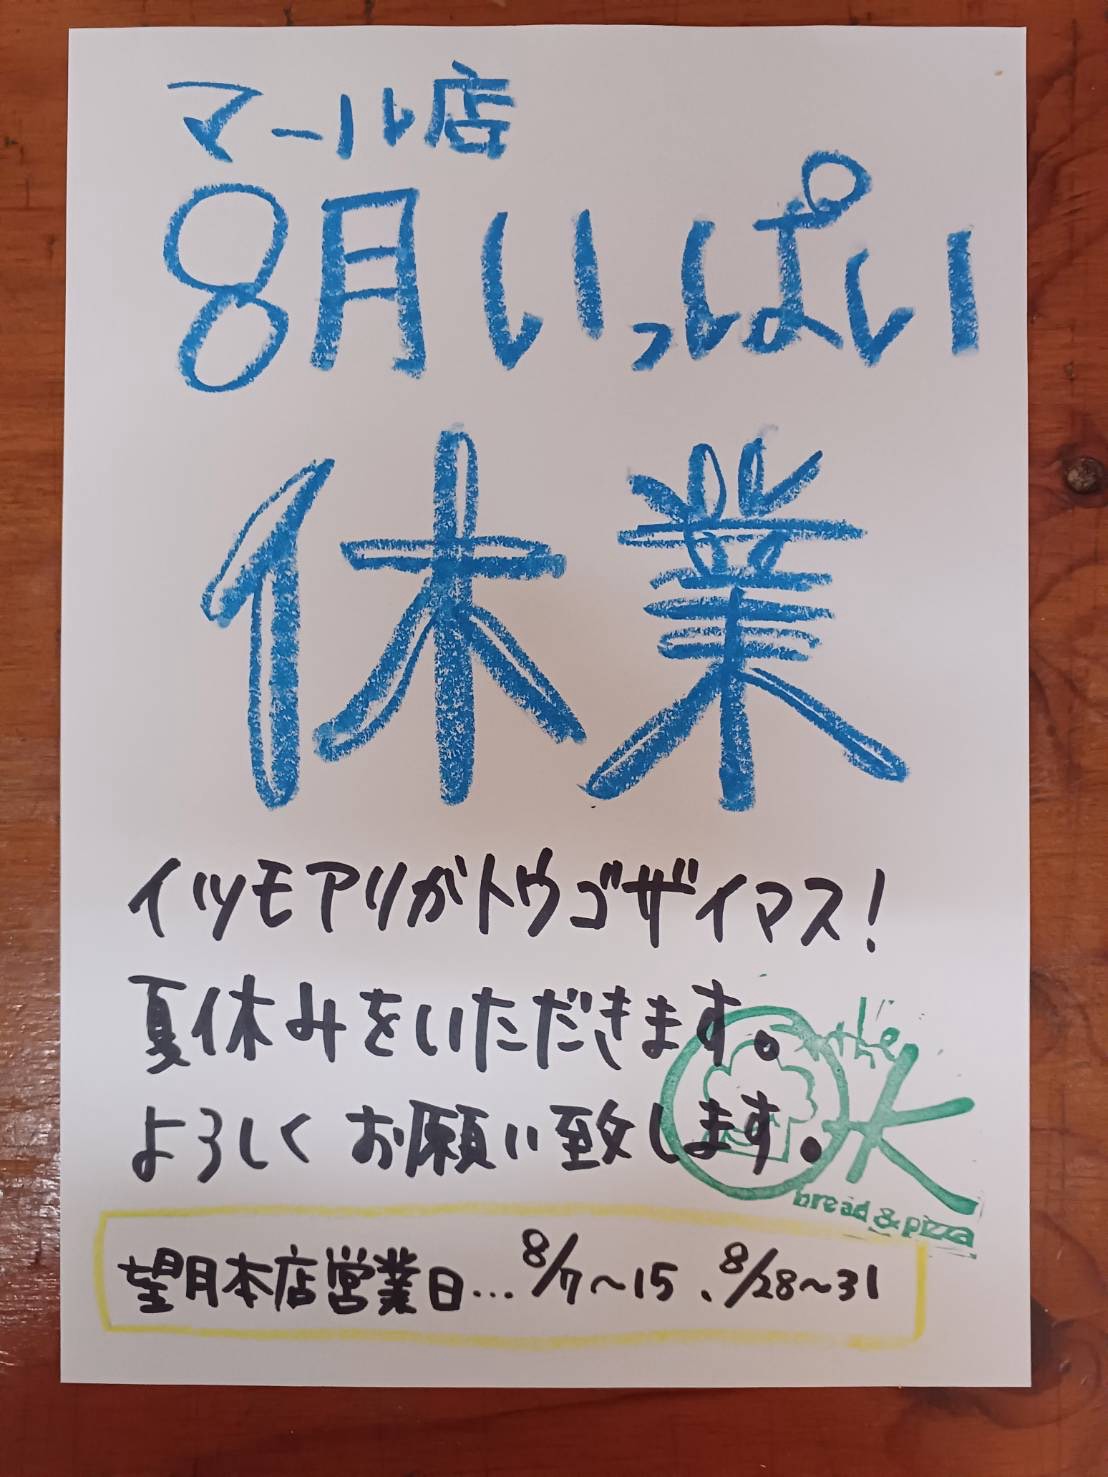 マール店
8月いっぱい
休業
イツモアリガトウゴザイマス!
夏休みをいただきます。
よろしくお願い致します。
the
OK
bread & pizza
望月本店営業日...8/7〜15、8/28〜31